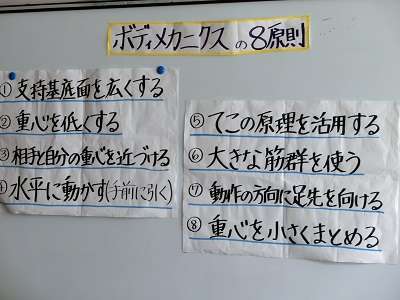 ボディメカニクスの8原則
① 支持基底面を広くする
② 重心を低くする
③ 相手と自分の重心を近づける
④ 水平に動かす(手前に引く)
⑤ てこの原理を活用する
⑥ 大きな筋群を使う
⑦ 動作の方向に足先を向ける
⑧ 重心を小さくまとめる